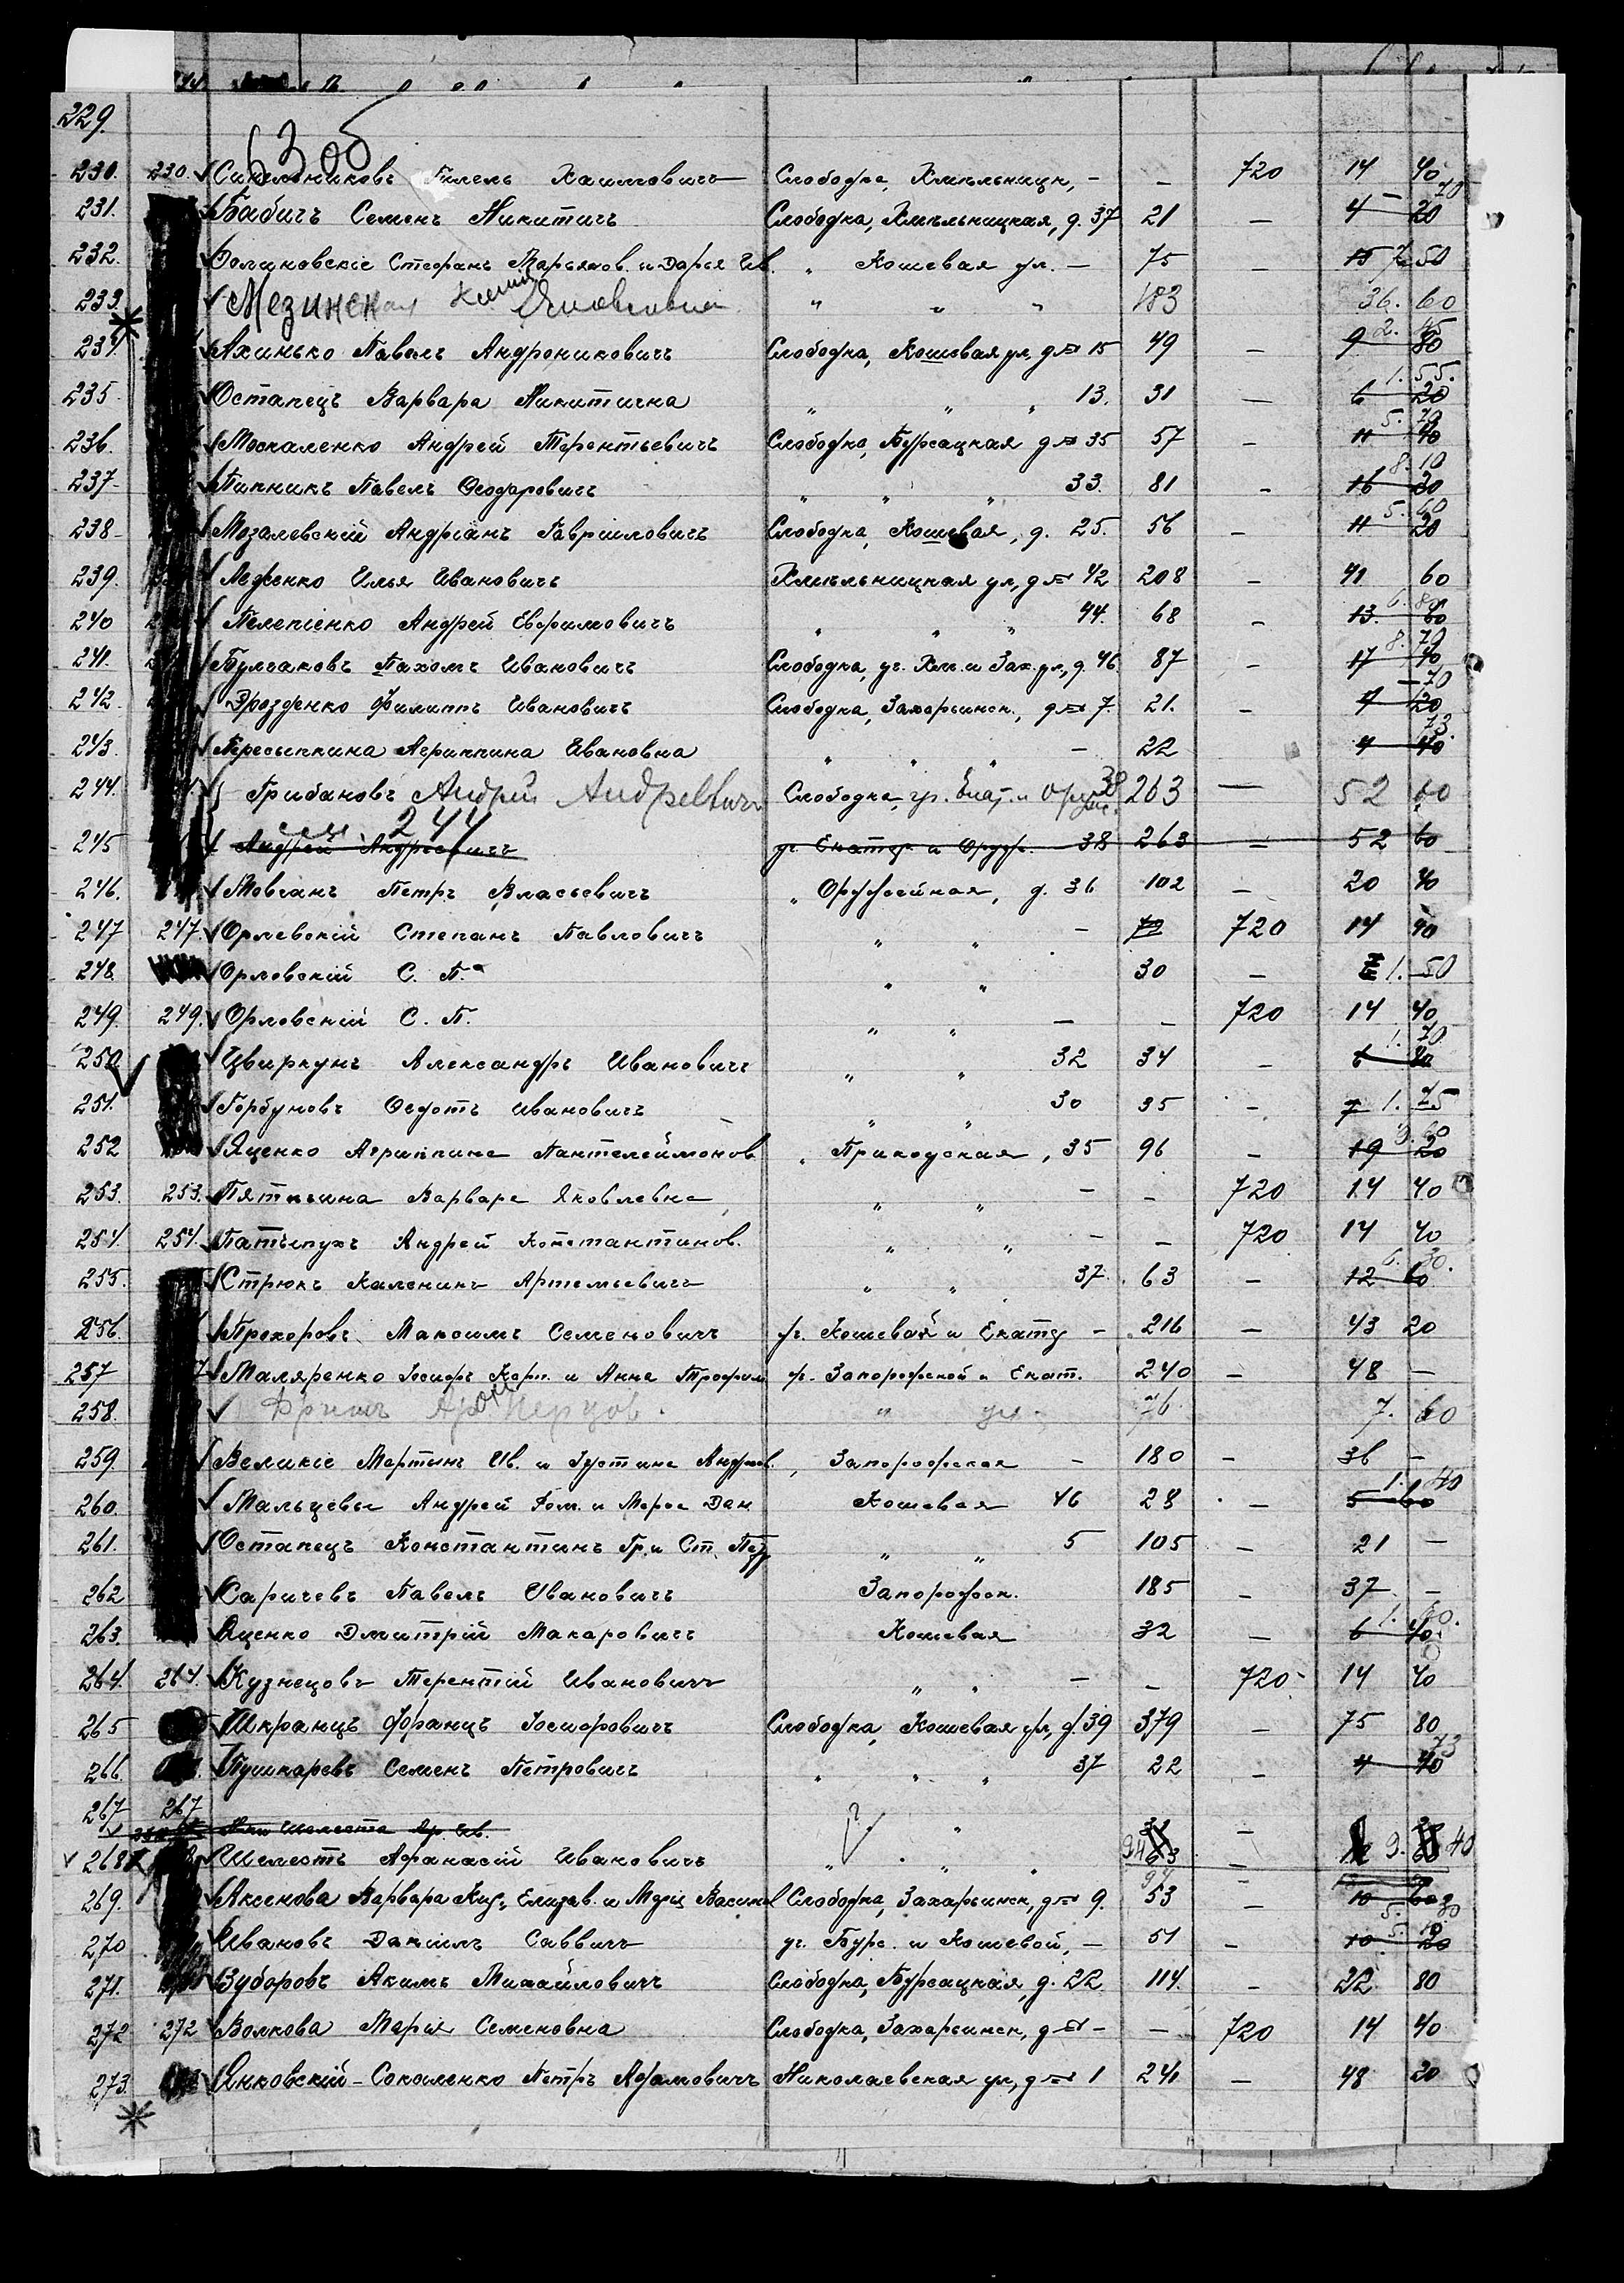 229.
6305
230. 230. Синельниковъ Гилель Хаимовичъ Слободка, Хмѣльницк, - - 720 14 40
231. Бабичъ Семенъ Никитичъ Слободка, Хмѣльницкая, д. 37 21 - 4 20 70
232. Стефанъ Марьянов. и Дарья Ив. " Кошевая ул. - 75 - 15 7 50
233 Мезинская Яковлевна " " " 183 36. 60
234. Ахинько Павелъ Андрониковичъ Слободка, Кошевая ул д № 15 49 - 9 80 2. 45
235 Остапецъ Варвара Никитична " " " 13. 31 - 6 20 1. 55.
236. Москаленко Андрей Терентьевичъ Слободка, Бурсацкая д № 35 57 - 11 40 5. 70
237- Пипникъ Павелъ Ѳеодоровичъ " " " 33. 81 - 16 20 8. 10
238- Мозалевскій Андріанъ Гавриловичъ Слободка, Кошевая, д. 25. 56 - 11 20 5. 60
239. Леженко Илья Ивановичъ Хмѣльницкая ул, д № 42 208 - 41 60
240 Пелепенко Андрей Евфимовичъ " " " 44. 68 - 13. 60 6. 80
241. Булгаковъ Пахомъ Ивановичъ Слободка, уг. Хм. и Зах. ул, д. 46 87 - 17 40 8. 70
242. Дрозденко Филиппъ Ивановичъ Слободка, Захарьинск., д № 7. 21. - 4 20 - 70
243. Пересыпкина Агриппина Ивановна " " " - 22 4 40 73.
244. Грибановъ Андрей Андреевичъ Слободка, уг. Екат. и Оруж. 38 263 - 52 60
245 см 244 Андрей Андреевичъ уг. Екатер. и Оруж. - 38 263 - 52 60
246. Мовчанъ Петръ Власьевичъ " Оружейная, д. 36 102 - 20 40
247 247. Орловскій Степанъ Павловичъ " " - 72 720 14 40
248. Орловскій С. П. " " 30 - 1. 50
249. 249. Орловскій С. П. " " - - 720 14 40
250 Цвиркунъ Александръ Ивановичъ " " 32 34 - 6 80 1. 70
251. Горбуновъ Ѳедотъ Ивановичъ " " 30 35 - 7 1. 75
252 Яценко Агриппина Пантелеймонов. " Приходская, 35 96 - 19 20 9. 60
253. 253. Пяткина Варвара Яковлевна " " - - 720 14 40
254. 254. Андрей Константинов. " " - - 720 14 40
255. Стрюкъ Каленикъ Артемьевичъ " " 37. 63 - 12 60 6. 30.
256. Прохоровъ Максимъ Семеновичъ уг. Кошевой и Екатер - 216 - 43 20
257 Маляренко Іосифъ Карп. и Анна Трофим. уг. Запорожской и Екат. 240 - 48 -
258. " ул. 76. 7. 60
259. Великіе Мартынъ Ив. и Устина Андреев. " Запорожская - 180 - 36 -
260. Мальцевы Андрей Ром. и Марѳа Дан Кошевая 46 28 - 5 60 1. 40
261. Остапецъ Константинъ Гр. и Ст. Пет " " 5 105 - 21 -
262 Саричевъ Павелъ Ивановичъ Запорожск. 185 - 37 -
263. Яценко Дмитрій Макаровичъ Кошевая 32 - 6 40 1. 60.
264. 264. Кузнецовъ Терентій Ивановичъ " " - - 720 14 40
265 Шкранцъ Францъ Іосифовичъ Слободка, Кошевая ул, д. 39 379 - 75 80
266. Пушкаревъ Семенъ Петровичъ " " " 37 22 - 4 40 73
267 267 Шелеста Ар. Ив. ? "
268 Шелестъ Афанасій Ивановичъ " " " 94 - 9. 40
269. Аксенова Варвара Кир., Елизав. и Марія Васил. Слободка, Захарьинск, д № 9. 53 - 10 60 5. 30
270 Ивановъ Даніилъ Саввичъ уг. Бурс. и Кошевой, - 51 - 10 20 5. 10
271. Зуборовъ Акимъ Михайловичъ Слободка, Бурсацкая, д. 22 114. - 22 80
272 272 Волкова Марія Семеновна Слободка, Захарьинск, д № - - 720 14 40
273. Янковскій-Сокаленко Петръ Адамовичъ Николаевская ул, д № 1 241 - 48 20